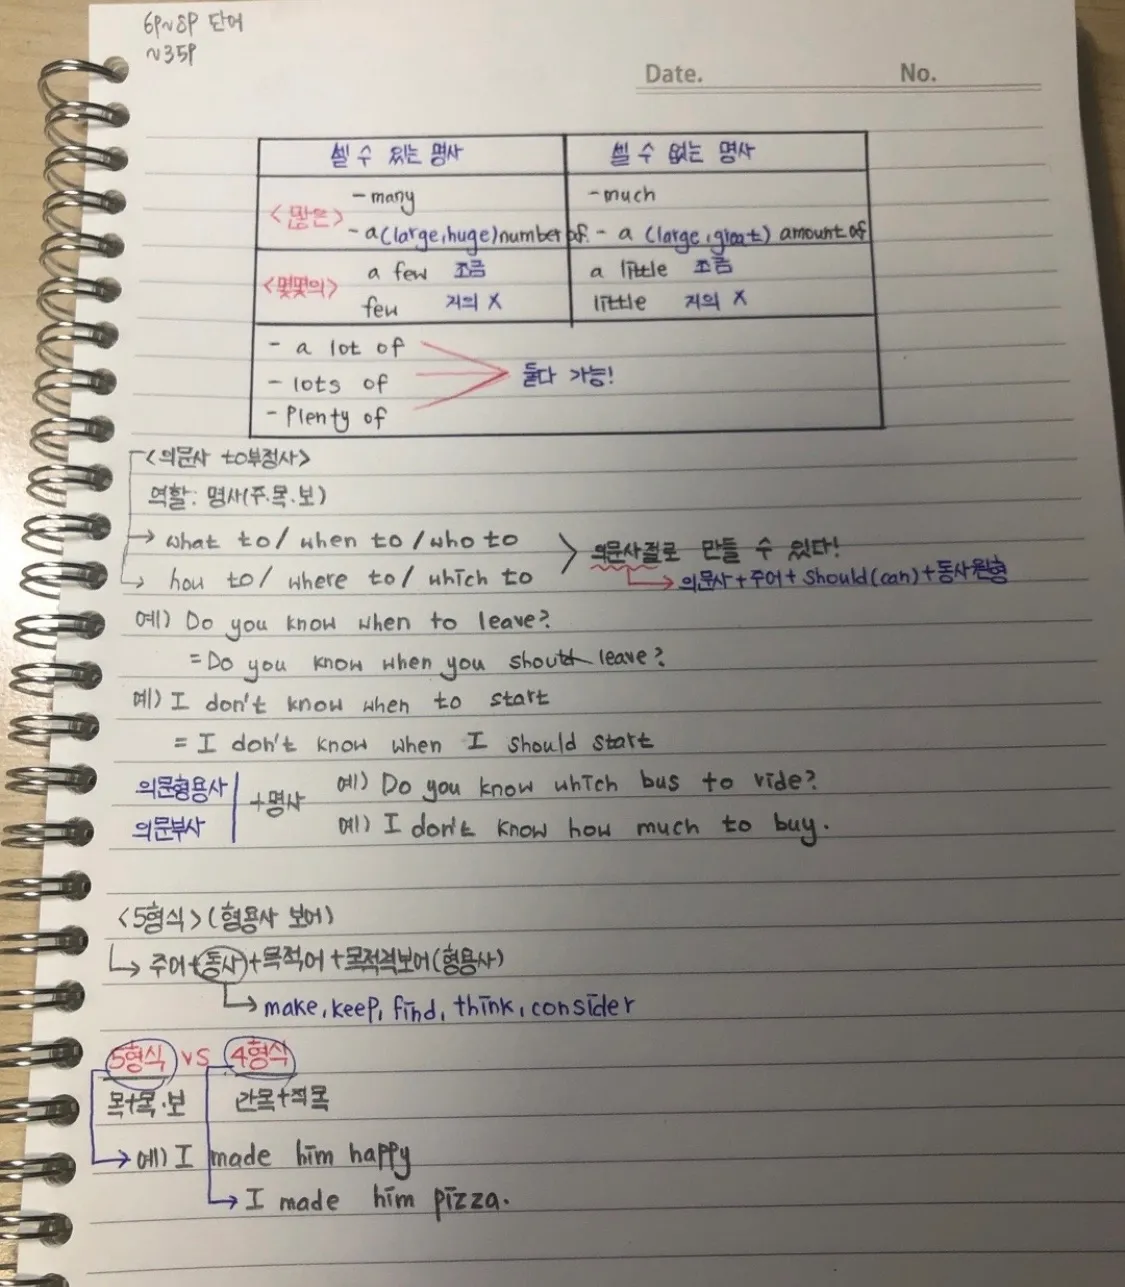 6p~8p 단어
~35p
Date. No.
셀 수 있는 명사 셀 수 없는 명사
<많은> - many - much
- a(large, huge) number of - a (large, great) amount of
<몇몇의> a few 조금 a little 조금
few 거의 X little 거의 X
- a lot of
- lots of 둘다 가능!
- Plenty of
<의문사 to부정사>
역할: 명사(주.목.보)
→ what to / when to / who to > 의문사절로 만들 수 있다!
→ how to / where to / which to → 의문사+주어+should(can)+동사원형
예) Do you know when to leave?
= Do you know when you should leave?
예) I don't know when to start
= I don't know when I should start
의문형용사 +명사 예) Do you know which bus to ride?
의문부사 예) I don't know how much to buy.
<5형식> (형용사 보어)
→ 주어+동사+목적어+목적격보어(형용사)
→ make, keep, find, think, consider
5형식 vs 4형식
목+목.보 간목+직목
→ 예) I made him happy
→ I made him pizza.